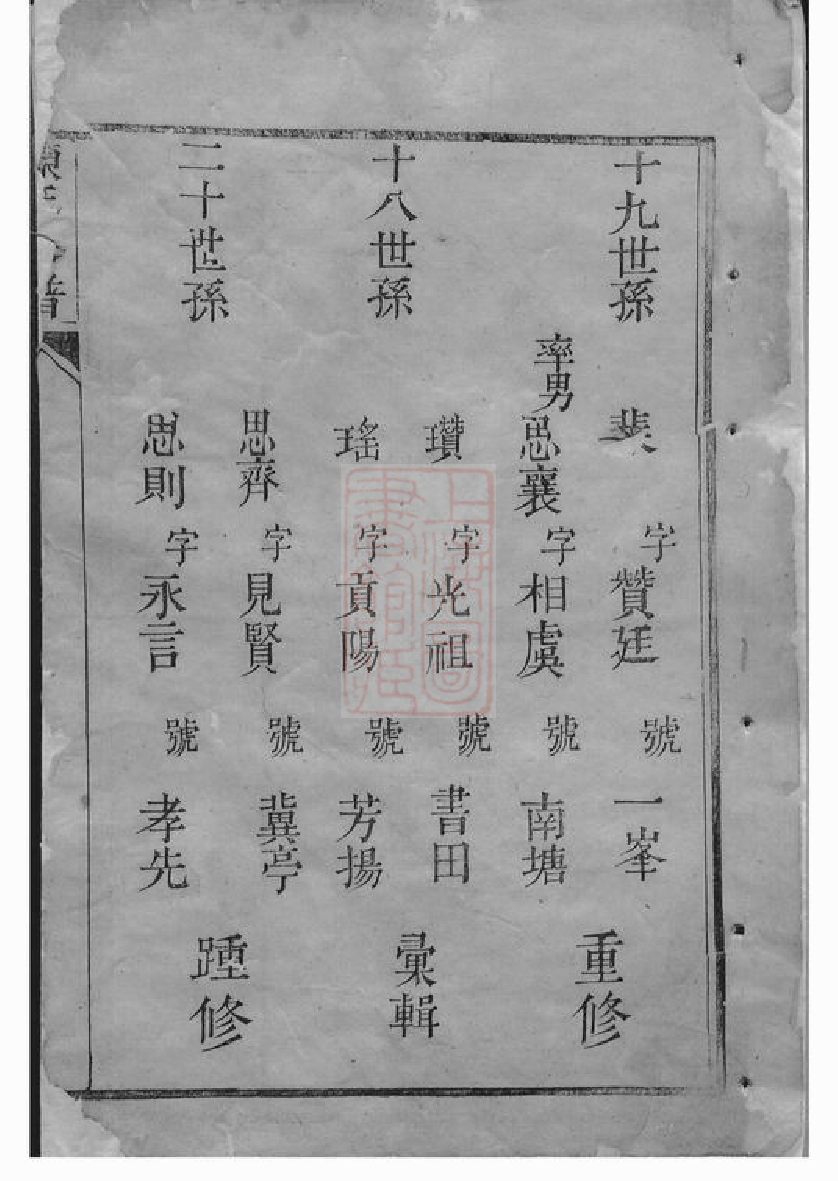 十九世孫
裴 字贊廷 號 一峯
率男思襄 字相虞 號 南塘
重修
十八世孫
瓚 字光祖 號 書田
瑤 字貢陽 號 芳揚
彙輯
二十世孫
思齊 字見賢 號 冀亭
思則 字永言 號 孝先
踵修
上海圖書館藏